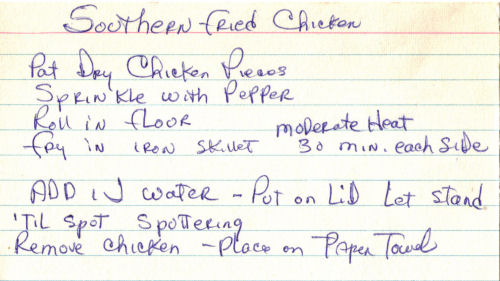 Southern Fried Chicken
Pat Dry Chicken Pieces
Sprinkle with Pepper
Roll in flour
fry in iron skillet moderate Heat 30 min. each side
ADD water - Put on Lid Let stand
'Til spot spottering
Remove chicken - place on Paper Towel